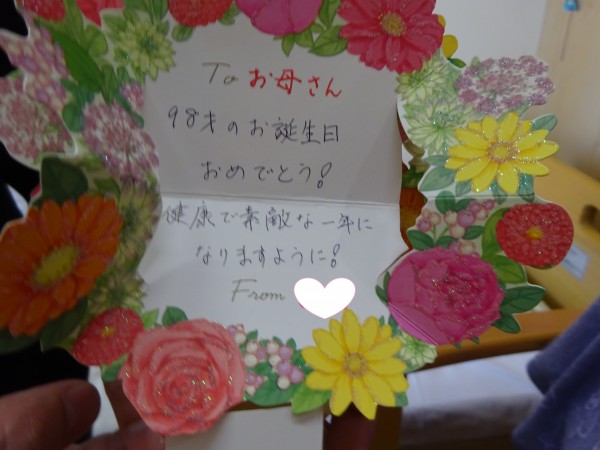 To お母さん
98才のお誕生日
おめでとう!
健康で素敵な一年に
なりますように!
From